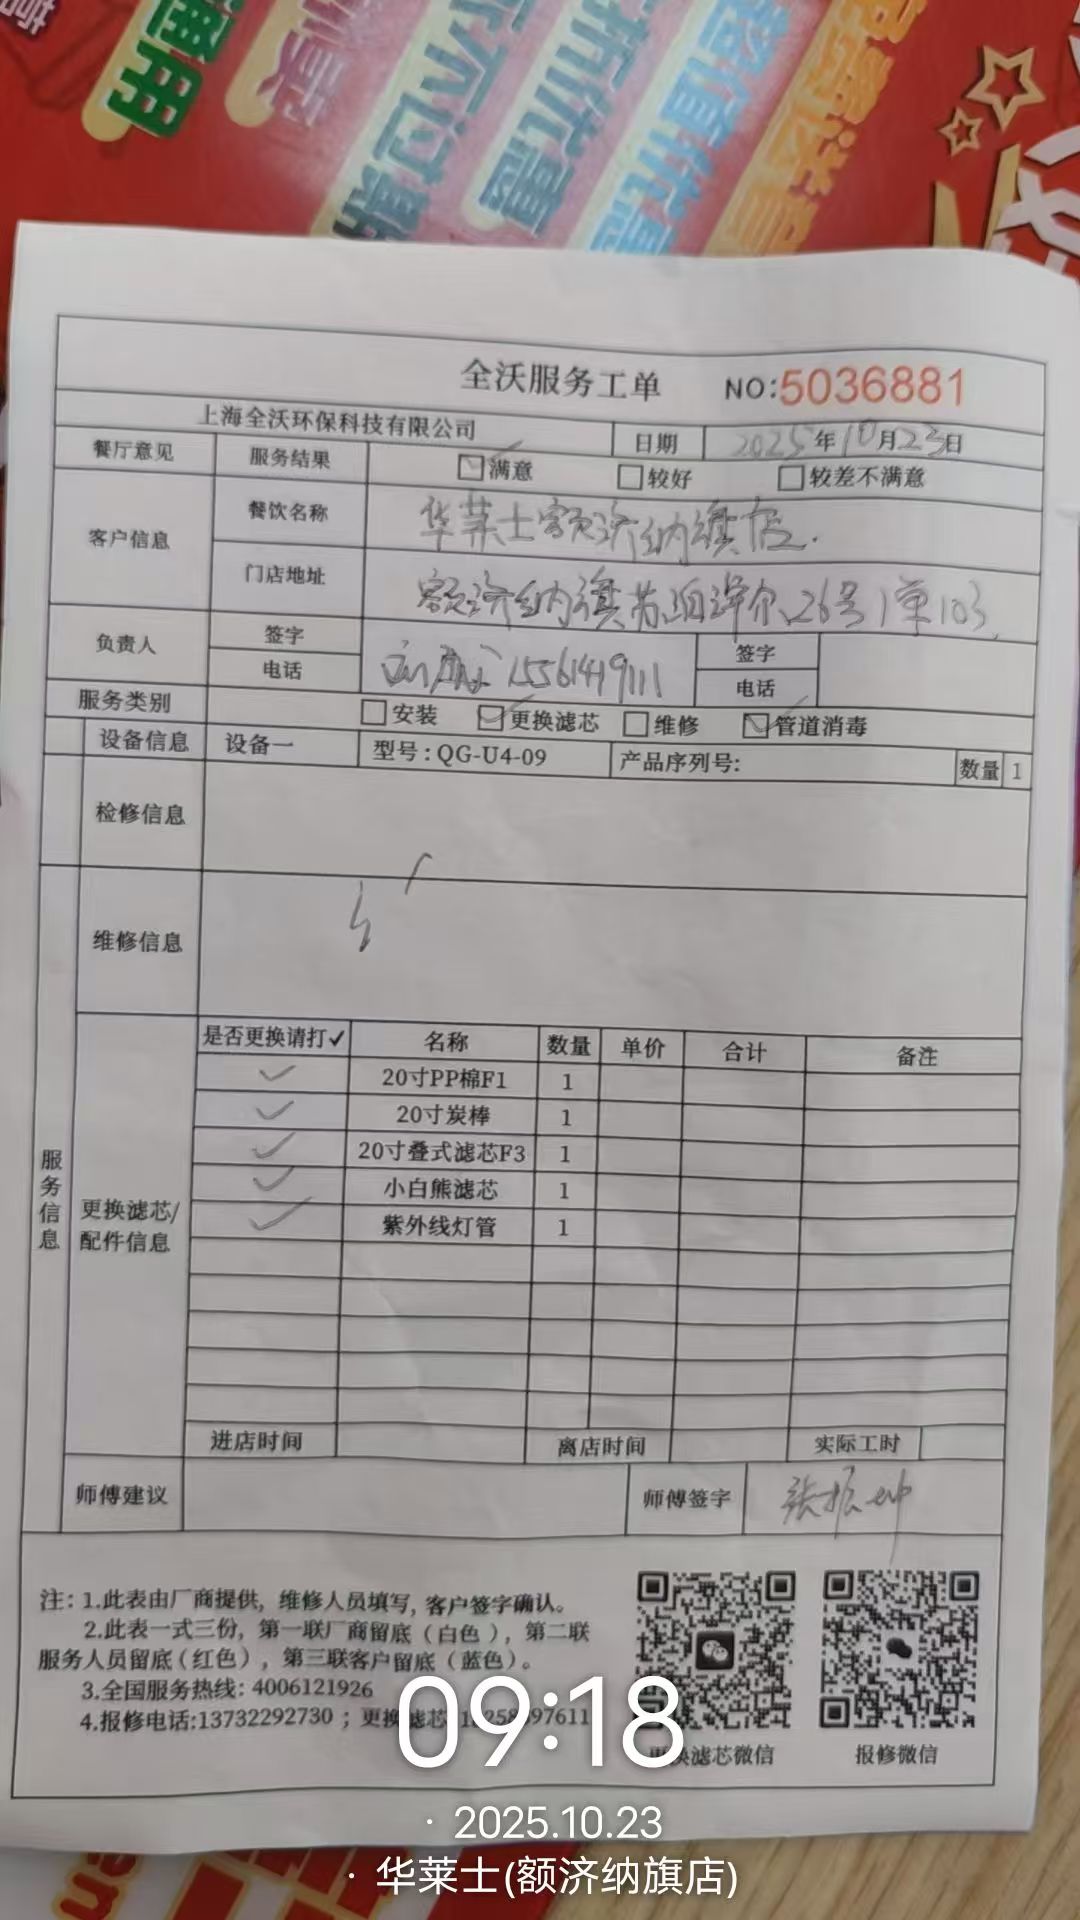 通用
不过期
折优惠
超值优惠
全沃服务工单 NO:5036881
上海全沃环保科技有限公司 日期 2025年10月23日
餐厅意见 服务结果 满意 较好 较差不满意
客户信息 餐饮名称 华莱士额济纳旗店.
门店地址 额济纳旗苏泊淖尔26号1单103
负责人 签字 签字
电话 15561419111 电话
服务类别 安装 更换滤芯 维修 管道消毒
设备信息 设备一 型号:QG-U4-09 产品序列号: 数量 1
检修信息
维修信息
服务信息
更换滤芯/配件信息
是否更换请打✓ 名称 数量 单价 合计 备注
✓ 20寸PP棉F1 1
✓ 20寸炭棒 1
✓ 20寸叠式滤芯F3 1
✓ 小白熊滤芯 1
✓ 紫外线灯管 1
进店时间 离店时间 实际工时
师傅建议 师傅签字 张振坤
注: 1.此表由厂商提供, 维修人员填写, 客户签字确认。
2.此表一式三份, 第一联厂商留底 (白色), 第二联
服务人员留底 (红色), 第三联客户留底 (蓝色)。
3.全国服务热线: 4006121926
4.报修电话:13732292730 ; 更换滤芯
更换滤芯微信 报修微信
09:18
· 2025.10.23
· 华莱士(额济纳旗店)